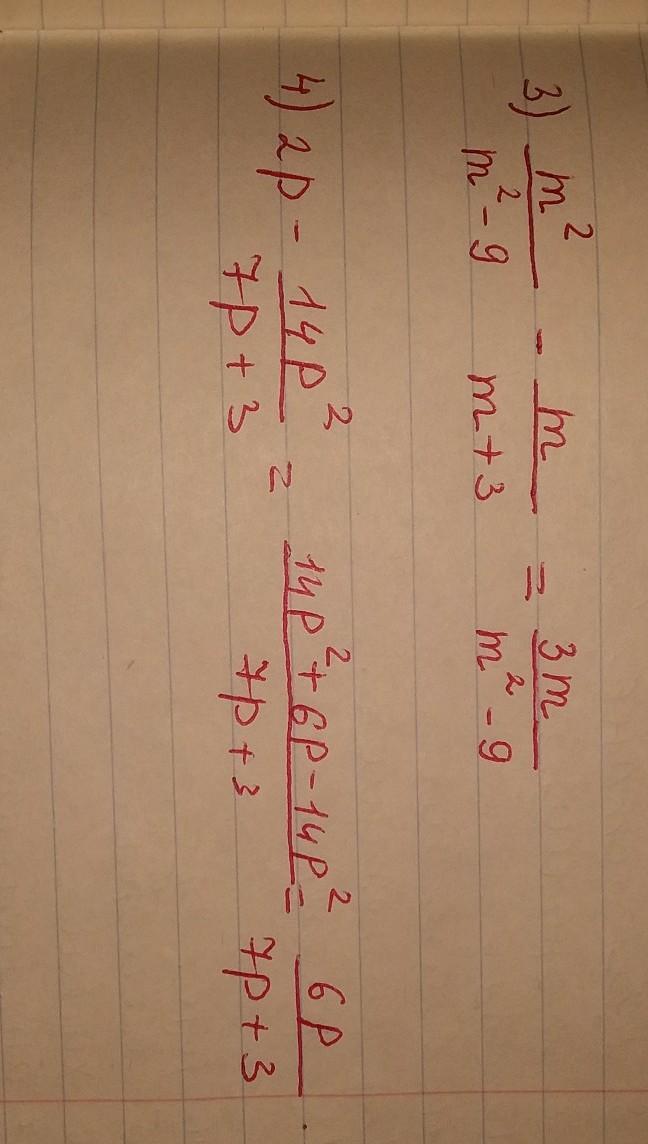 3) m²/(m² - 9) - m/(m + 3) = 3m/(m² - 9)
4) 2p - 14p²/(7p + 3) = (14p² + 6p - 14p²)/(7p + 3) = 6p/(7p + 3)